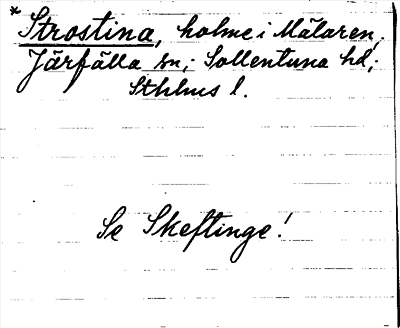 * Strostina, holme i Mälaren,
Järfälla sn; Sollentuna hd;
Sthlms l.
Se Skeftinge!